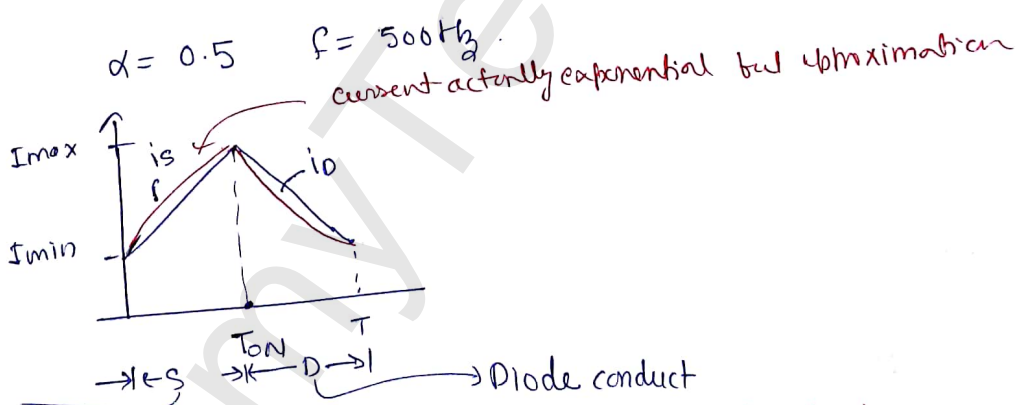 α = 0.5 f = 500Hz.
current actually exponential but approximation
Imax
is
iD
Imin
TON T
S D Diode conduct